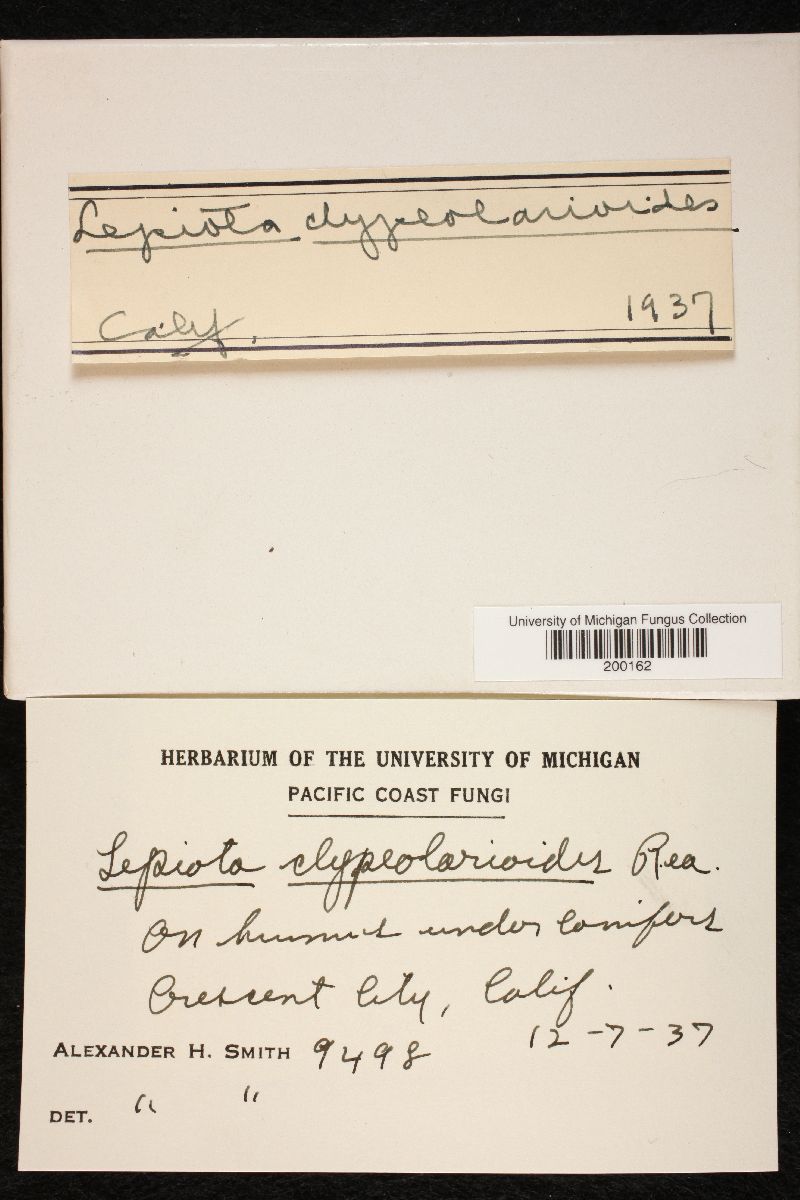 Lepiota clypeolarioides
Calif. 1937
University of Michigan Fungus Collection
200162
HERBARIUM OF THE UNIVERSITY OF MICHIGAN
PACIFIC COAST FUNGI
Lepiota clypeolarioides Rea.
On humus under conifers
Crescent City, Calif.
12-7-37
ALEXANDER H. SMITH 9498
DET. " "